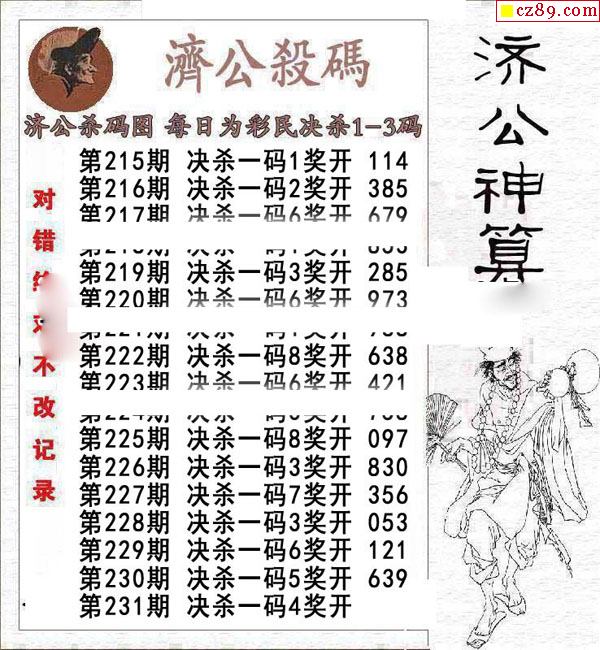 cz89.com
濟公殺碼
济公杀码图 每日为彩民决杀1-3码
第215期 决杀一码1奖开 114
第216期 决杀一码2奖开 385
第217期 决杀一码6奖开 679
第219期 决杀一码3奖开 285
第220期 决杀一码6奖开 973
第222期 决杀一码8奖开 638
第223期 决杀一码6奖开 421
第225期 决杀一码8奖开 097
第226期 决杀一码3奖开 830
第227期 决杀一码7奖开 356
第228期 决杀一码3奖开 053
第229期 决杀一码6奖开 121
第230期 决杀一码5奖开 639
第231期 决杀一码4奖开
对错 不改记录
济公神算